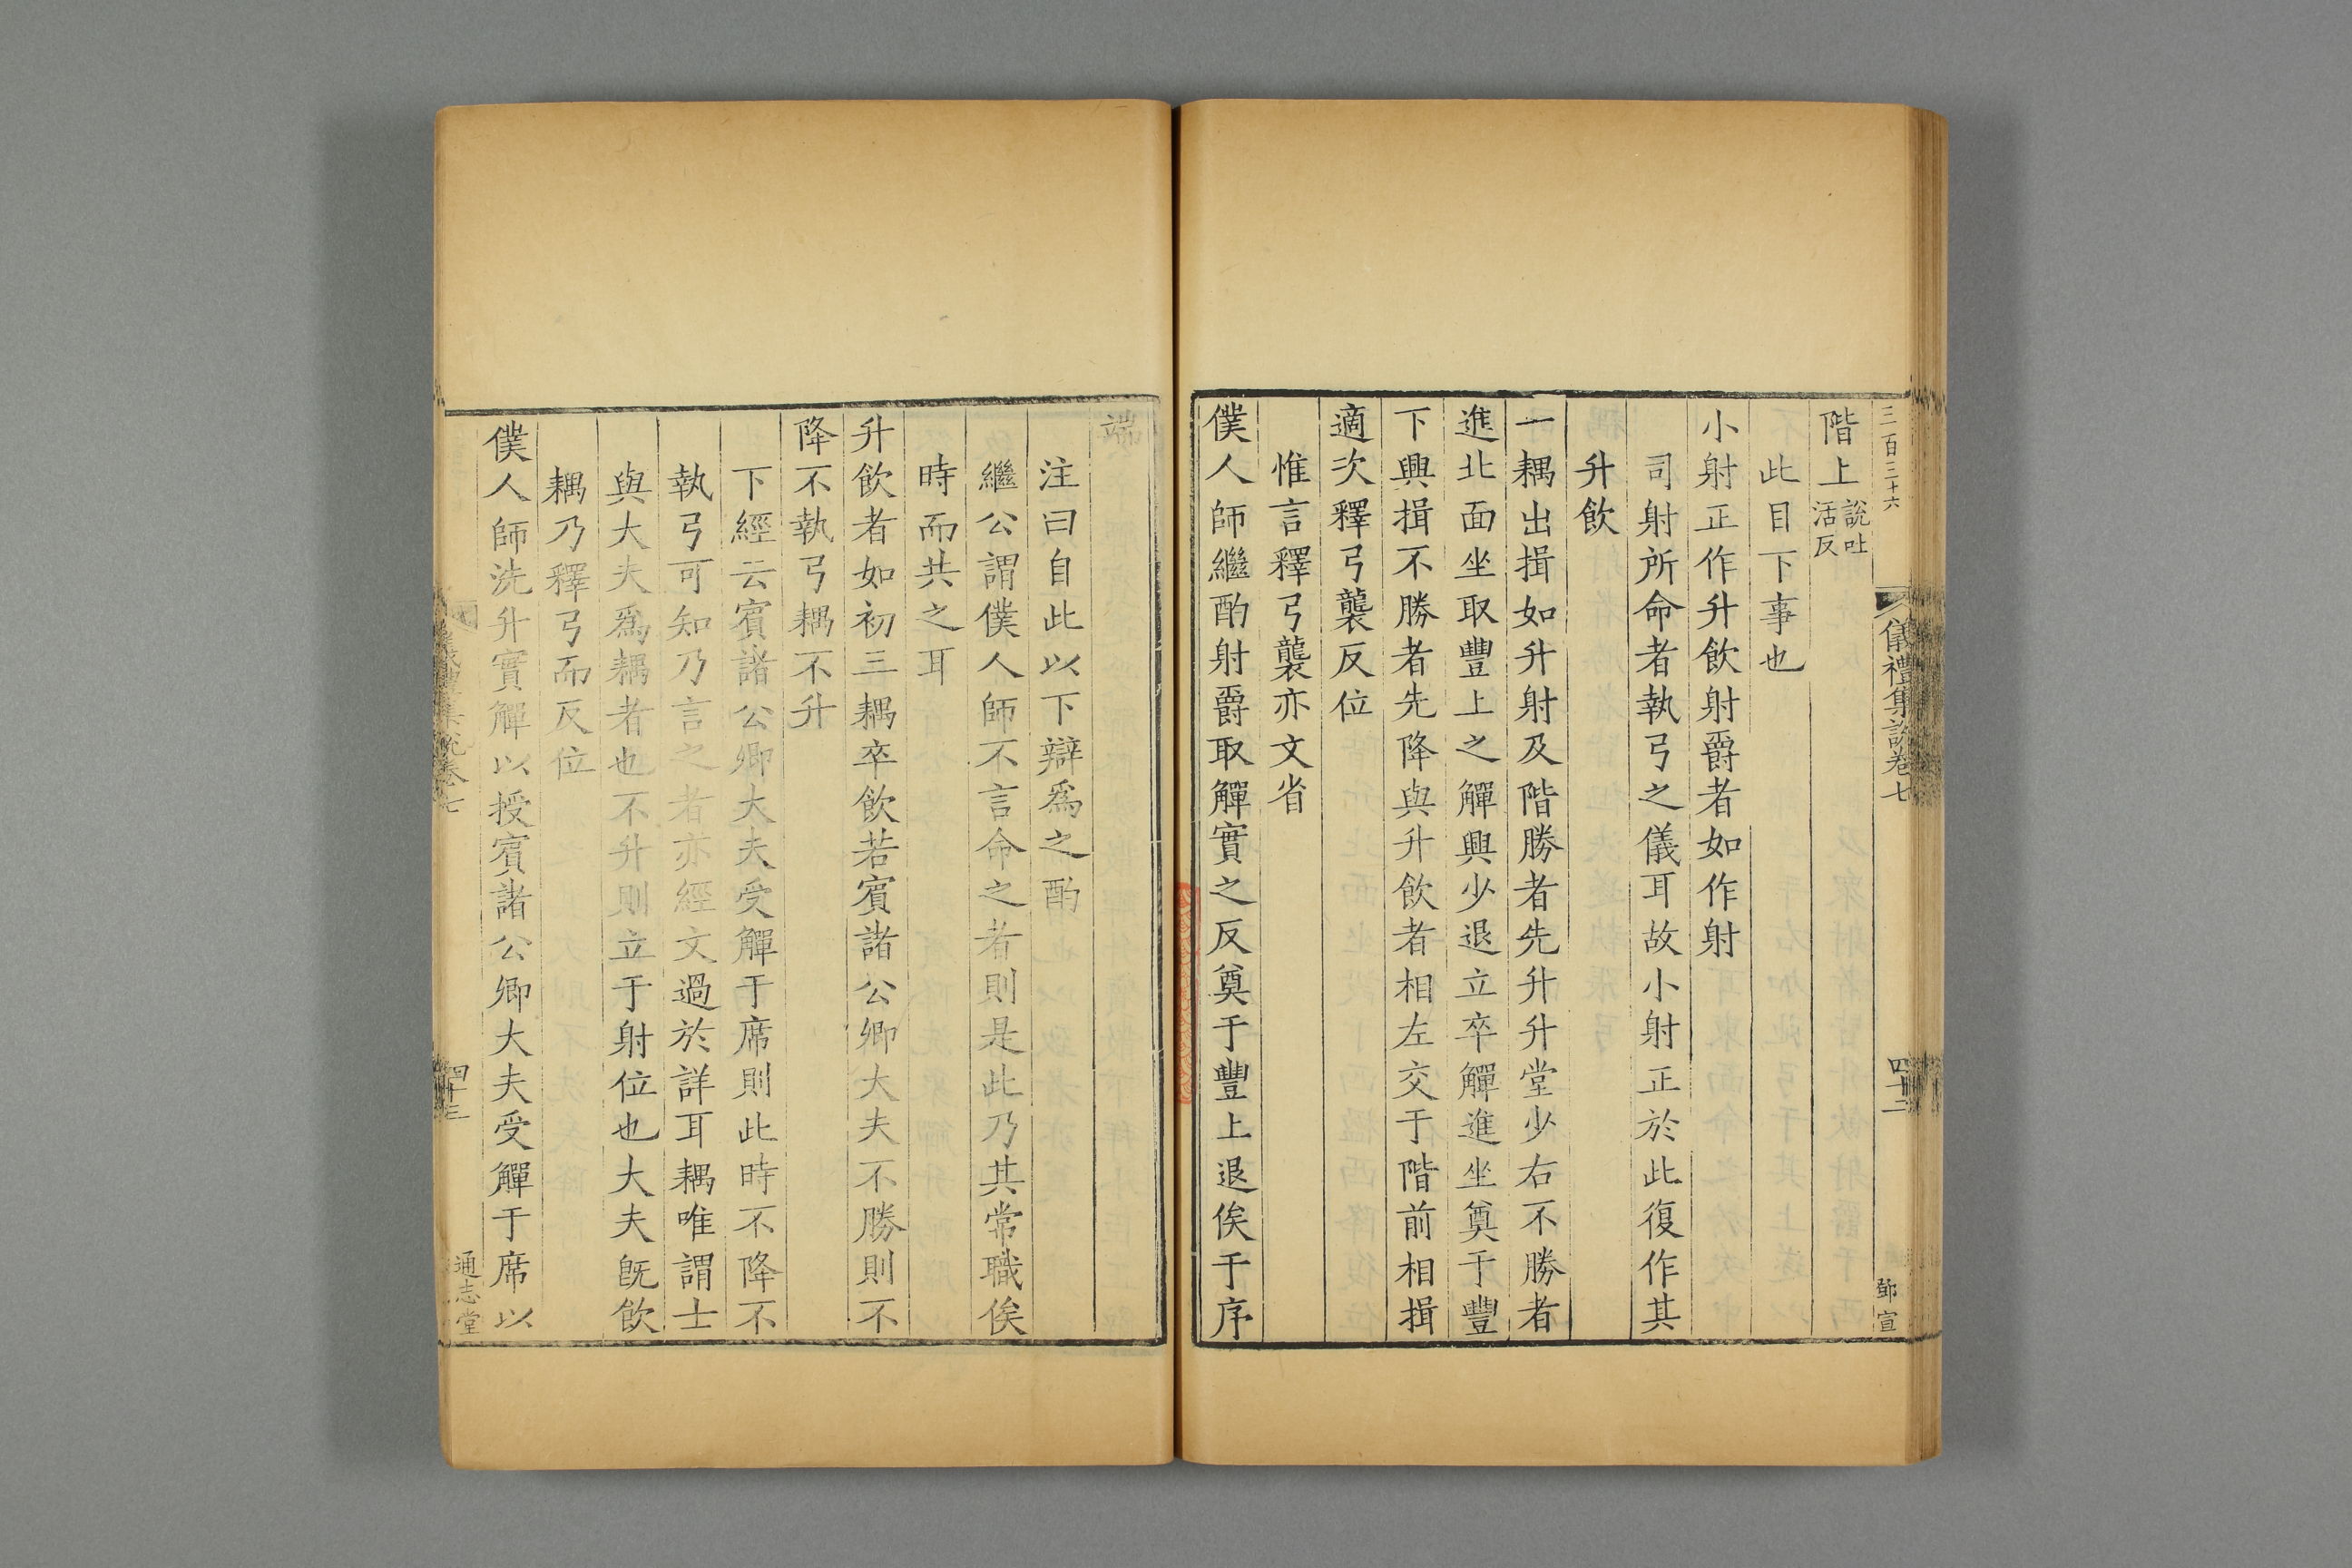 三百三十六
儀禮集說卷七
四十二
鄧宣
階上說吐活反
此目下事也
小射正作升飲射爵者如作射
司射所命者執弓之儀耳故小射正於此復作其
升飲
一耦出揖如升射及階勝者先升升堂少右不勝者
進北面坐取豐上之觶興少退立卒觶進坐奠于豐
下興揖不勝者先降與升飲者相左交于階前相揖
適次釋弓襲反位
惟言釋弓襲亦文省
僕人師繼酌射爵取觶實之反奠于豐上退俟于序
端
注曰自此以下辯為之酌
繼公謂僕人師不言命之者則是此乃其常職俟
時而共之耳
升飲者如初三耦卒飲若賔諸公卿大夫不勝則不
降不執弓耦不升
下經云賔諸公卿大夫受觶于席則此時不降不
執弓可知乃言之者亦經文過於詳耳耦唯謂士
與大夫爲耦者也不升則立于射位也大夫旣飲
耦乃釋弓而反位
僕人師洗升實觶以授賔諸公卿大夫受觶于席以
儀禮集說卷七
四十三
通志堂